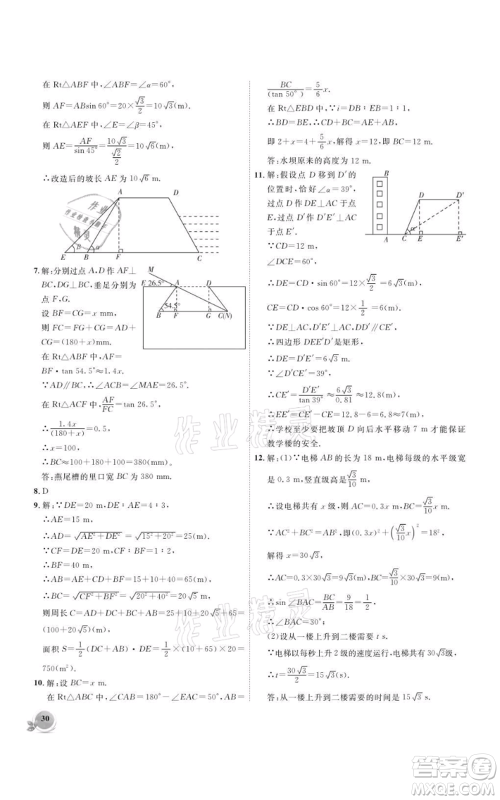 在 Rt△ABF 中,∠ABF=∠α=60°,
则 AF=ABsin 60°=20×√3/2=10√3(m).
在 Rt△AEF 中,∠E=∠β=45°,
则 AE=AF/sin 45°=10√3/(√2/2)=10√6(m).
∴改造后的坡长 AE 为 10√6 m.
A D
E α β B F C
7. 解:分别过点 A,D 作 AF⊥
BC,DG⊥BC,垂足分别为
点 F,G.
设 BF=CG=x mm,
则 FC=FG+CG=AD+CG
=(180+x)mm.
在 Rt△ABF 中,AF=
BF·tan 54.5°≈1.4x mm.
∵AD∥BC,∴∠ACB=∠MAE=26.5°.
在 Rt△ACF 中,AF/FC=tan 26.5°,
∴1.4x/(180+x)=0.5,
∴x=100,
∴BC≈100+180+100=380(mm).
答:燕尾槽的里口宽 BC 为 380 mm.
M
E 26.5° A D
54.5°
B F G C(N)
8. D
9. 解:∵DE=20 m,DE:AE=4:3,
∴AE=15 m,
∴AD=√(AE²+DE²)=√(15²+20²)=25(m).
∵CF=DE=20 m,CF:BF=1:2,
∴BF=40 m,
∴BC=√(CF²+BF²)=√(20²+40²)=20√5(m),
∴周长 C=AD+DC+BC+AB=25+10+20√5+(15+10+40)=
(100+20√5)(m),
面积 S=1/2(DC+AB)·DE=1/2(10+15+10+40)×20=
750(m²).
10. 解:设 BC=x m.
在 Rt△ABC 中,∠CAB=180°-∠EAC=50°,AB=
BC/(tan 50°)≈5/6x.
在 Rt△EBD 中,∵i=DB:EB=1:1,
∴BD=BE,∴CD+BC=AE+AB,
即 2+x=4+5/6x,解得 x=12,
即 BC=12 m.
答:水坝原来的高度为 12 m.
11. 解:假设点 D 移到 D′
的位置时,恰好∠α=39°,
过点 D 作 DE⊥AC
于点 E,过点 D′作 D′E′
⊥AC 于点 E′.
∵CD=12 m,
∠DCE=60°,
D D′
α
C E E′
∴DE=CD·sin 60°=12×√3/2=6√3(m),
CE=CD·cos 60°=12×1/2=6(m).
∵DE⊥AC,D′E′⊥AC,DD′∥CE′,
∴四边形 DEE′D′是矩形,
∴DE=D′E′=6√3 m.
∵∠D′CE′=39°,
∴CE′=D′E′/tan 39°≈6√3/0.81≈12.8(m),
∴EE′=CE′-CE=12.8-6=6.8≈7(m).
∴学校至少要把坡顶 D 向后水平移动 7 m 才能保证
教学楼的安全.
12. 解:(1)∵电梯 AB 的长为 18 m,电梯每级的水平级宽
是 0.3 m,竖直级高为√3/10 m,
∴设电梯共有 x 级,则 AC=0.3x m,BC=√3/10x m.
∵AC²+BC²=AB²,∴(0.3x)²+(√3/10x)²=18²,
解得 x=30√3.
∴AC=0.3×30√3=9√3(m),BC=√3/10×30√3=9(m),
∴sin∠BAC=BC/AB=9/18=1/2,∴∠BAC=30°.
(2)设从一楼上升到二楼需要的时间为 t s.
∵电梯以每秒上升 2 级的速度运行,电梯共有 30√3级,
∴t=30√3/2=15√3(s).
答:从一楼上升到二楼需要的时间是 15√3 s.
30
作业精灵
作业精灵
MXQE.COM